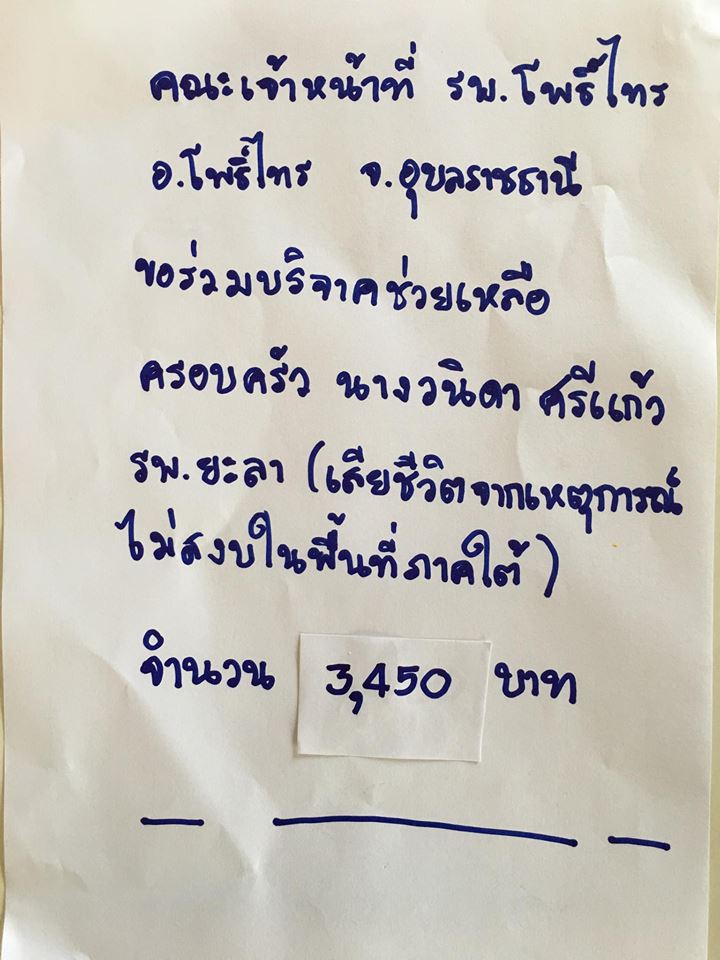 คณะเจ้าหน้าที่ รพ.โพธิ์ไทร
อ.โพธิ์ไทร จ.อุบลราชธานี
ขอร่วมบริจาคช่วยเหลือ
ครอบครัว นางวนิดา ศรีแก้ว
รพ.ยะลา (เสียชีวิตจากเหตุการณ์
ไม่สงบในพื้นที่ภาคใต้)
จำนวน 3,450 บาท